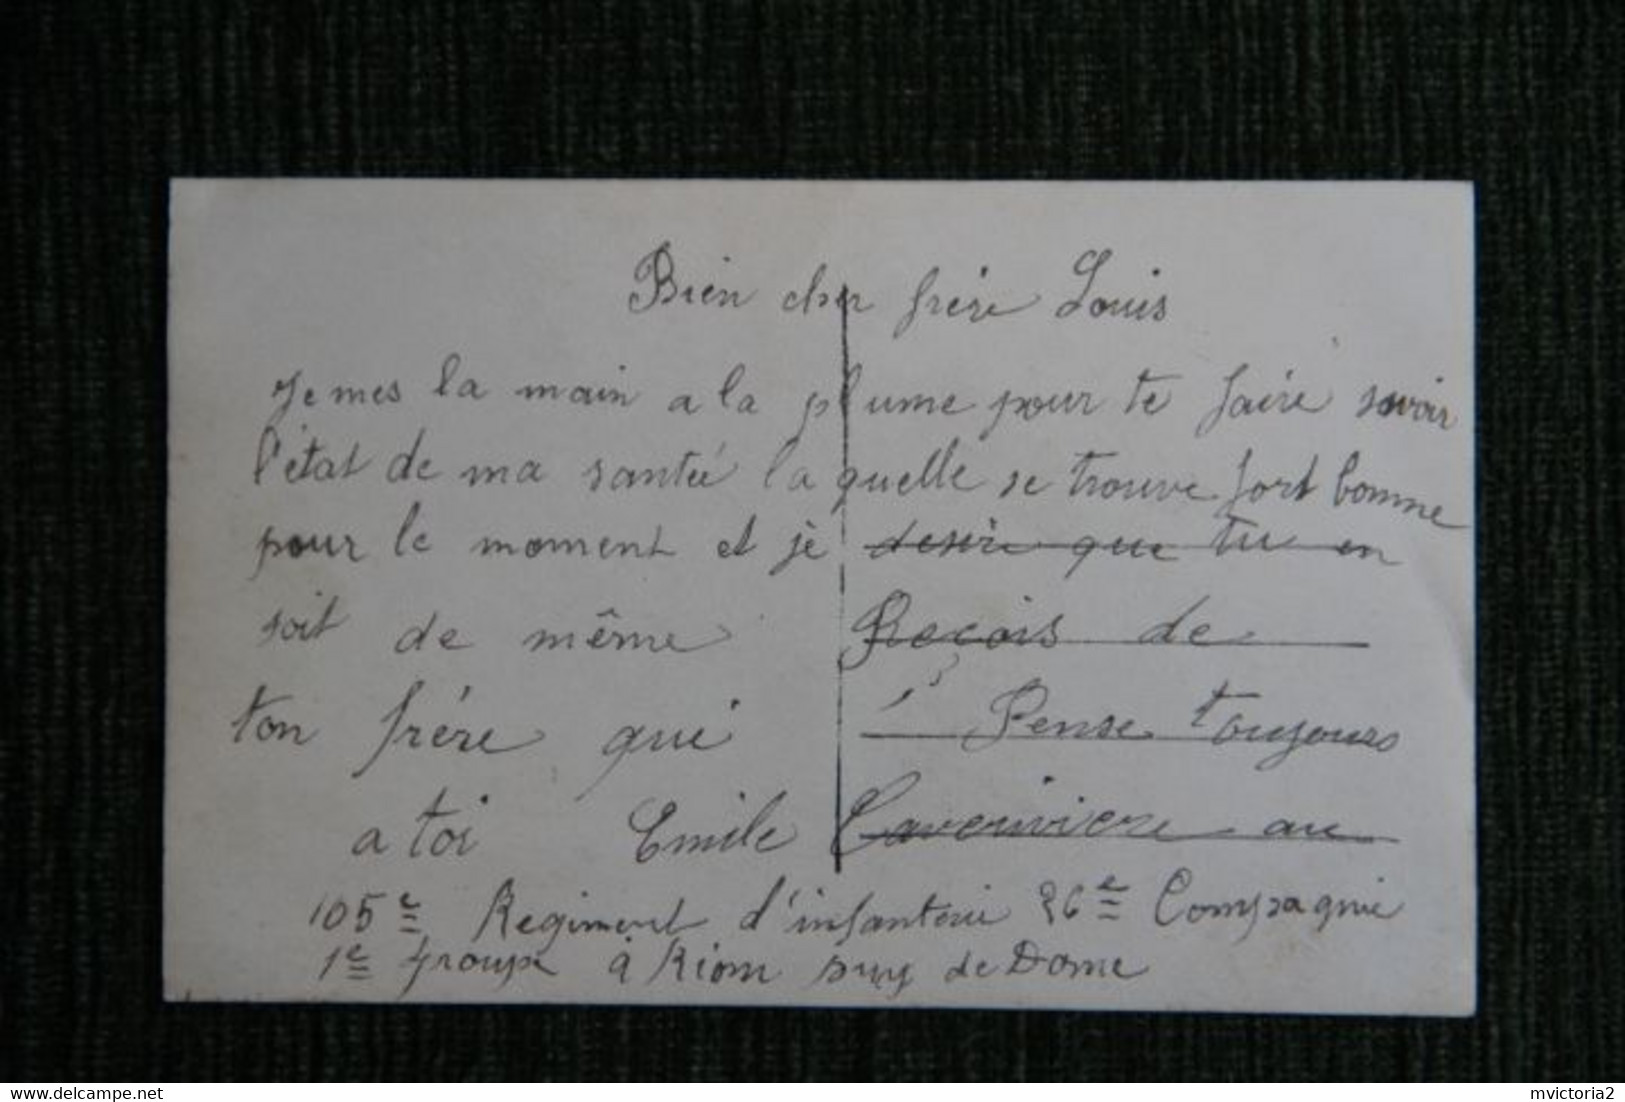 Bien cher frère Louis
Je mes la main a la plume pour te faire savoir
l'état de ma santée la quelle se trouve fort bonne
pour le moment et je desire que tu en
soit de même Recois de
ton frére qui Pense toujours
a toi Emile Laverniere au
105e Regiment d'infanterie 26e Compagnie
1e groupe à Riom puy de Dome
www.delcampe.net
mvictoria2